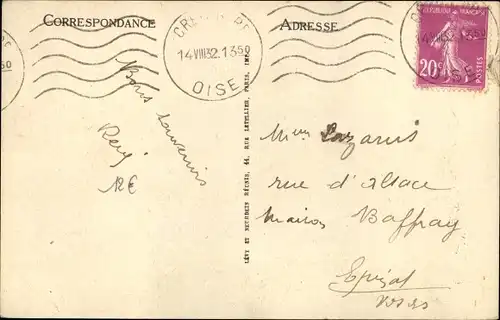 CORRESPONDANCE
ADRESSE
14 VIII 32. 1350
OISE
RÉPUBLIQUE FRANÇAISE
20c
POSTES
Bons souvenirs
LÉVY ET NEURDEIN RÉUNIS, 44, RUE LETELLIER, PARIS, IMP.
Lazarus
rue d'alsace
maison Baffray
Epinal
Vosges